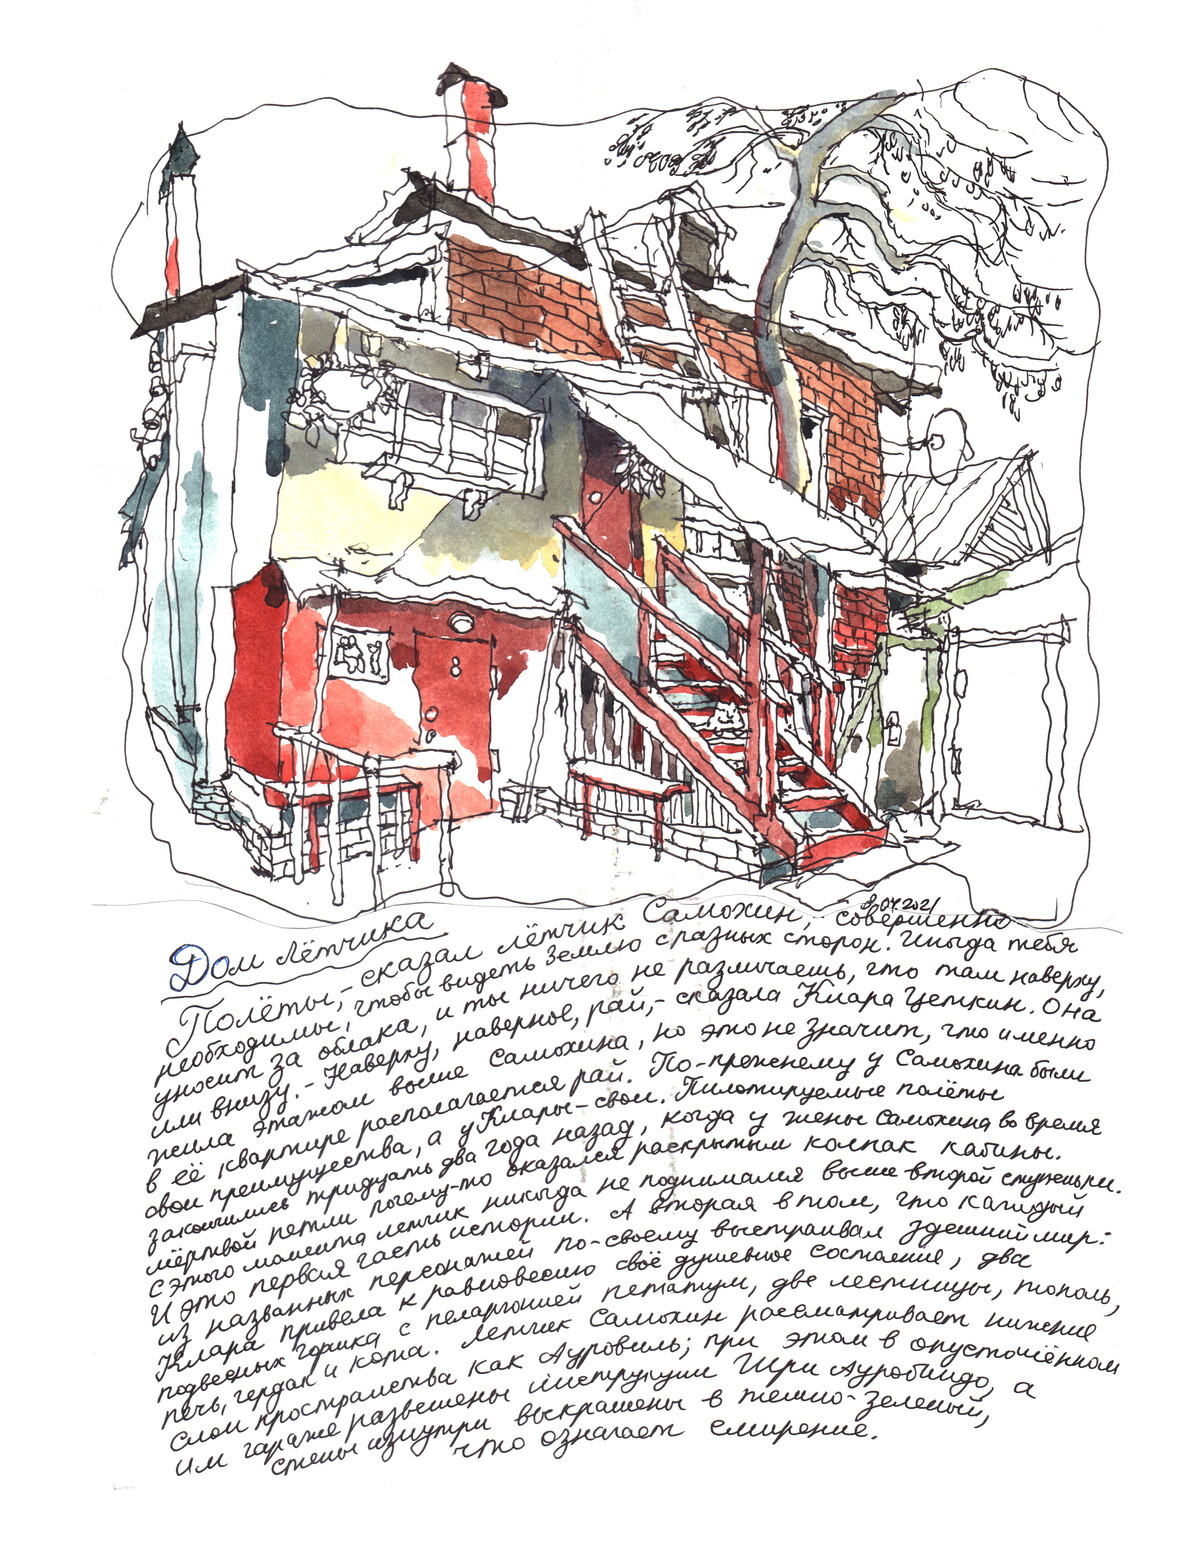 8.07.2021
Дом лётчика
Полёты, - сказал лётчик Самохин, - совершенно
необходимы, чтобы видеть Землю с разных сторон. Иногда тебя
уносит за облака, и ты ничего не различаешь, что там наверху,
или внизу. - Наверху, наверное, рай, - сказала Клара Цеткин. Она
жила этажом выше Самохина, но это не значит, что именно
в её квартире располагается рай. По-прежнему у Самохина были
свои преимущества, а у Клары - свои. Пилотируемые полёты
закончились тридцать два года назад, когда у жены Самохина во время
мёртвой петли почему-то оказался раскрытым колпак кабины.
С этого момента летчик никогда не поднимался выше второй ступеньки.
И это первая часть истории. А вторая в том, что каждый
из названных персонажей по-своему выстраивал здешний мир:
Клара привела к равновесию своё душевное состояние, два
подвесных горшка с пеларгонией петатум, две лестницы, тополь,
печь, чердак и кота. Летчик Самохин рассматривает нижние
слои пространства как Ауровиль; при этом в опустошённом
им гараже развешены инструкции Шри Ауробиндо, а
стены изнутри выкрашены в темно-зеленый,
что означает смирение.